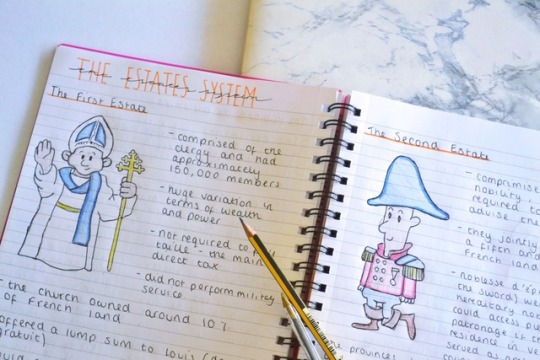 THE ESTATES SYSTEM
The First Estate
- comprised of the
clergy and had
approximately
150,000 members
- huge variation in
terms of wealth
and power
- not required to pay
taille - the main
direct tax
- did not perform military
service
- the church owned around 10%
of French land
offered a lump sum to Louis
gratuit)
The Second Estate
- compromise
nobility
required to
advise the
- they jointly
a fifth and
French land
- noblesse d'
the sword) we
hereditary no
could access pu
patronage if th
residence in Ve
served as
the provinces)